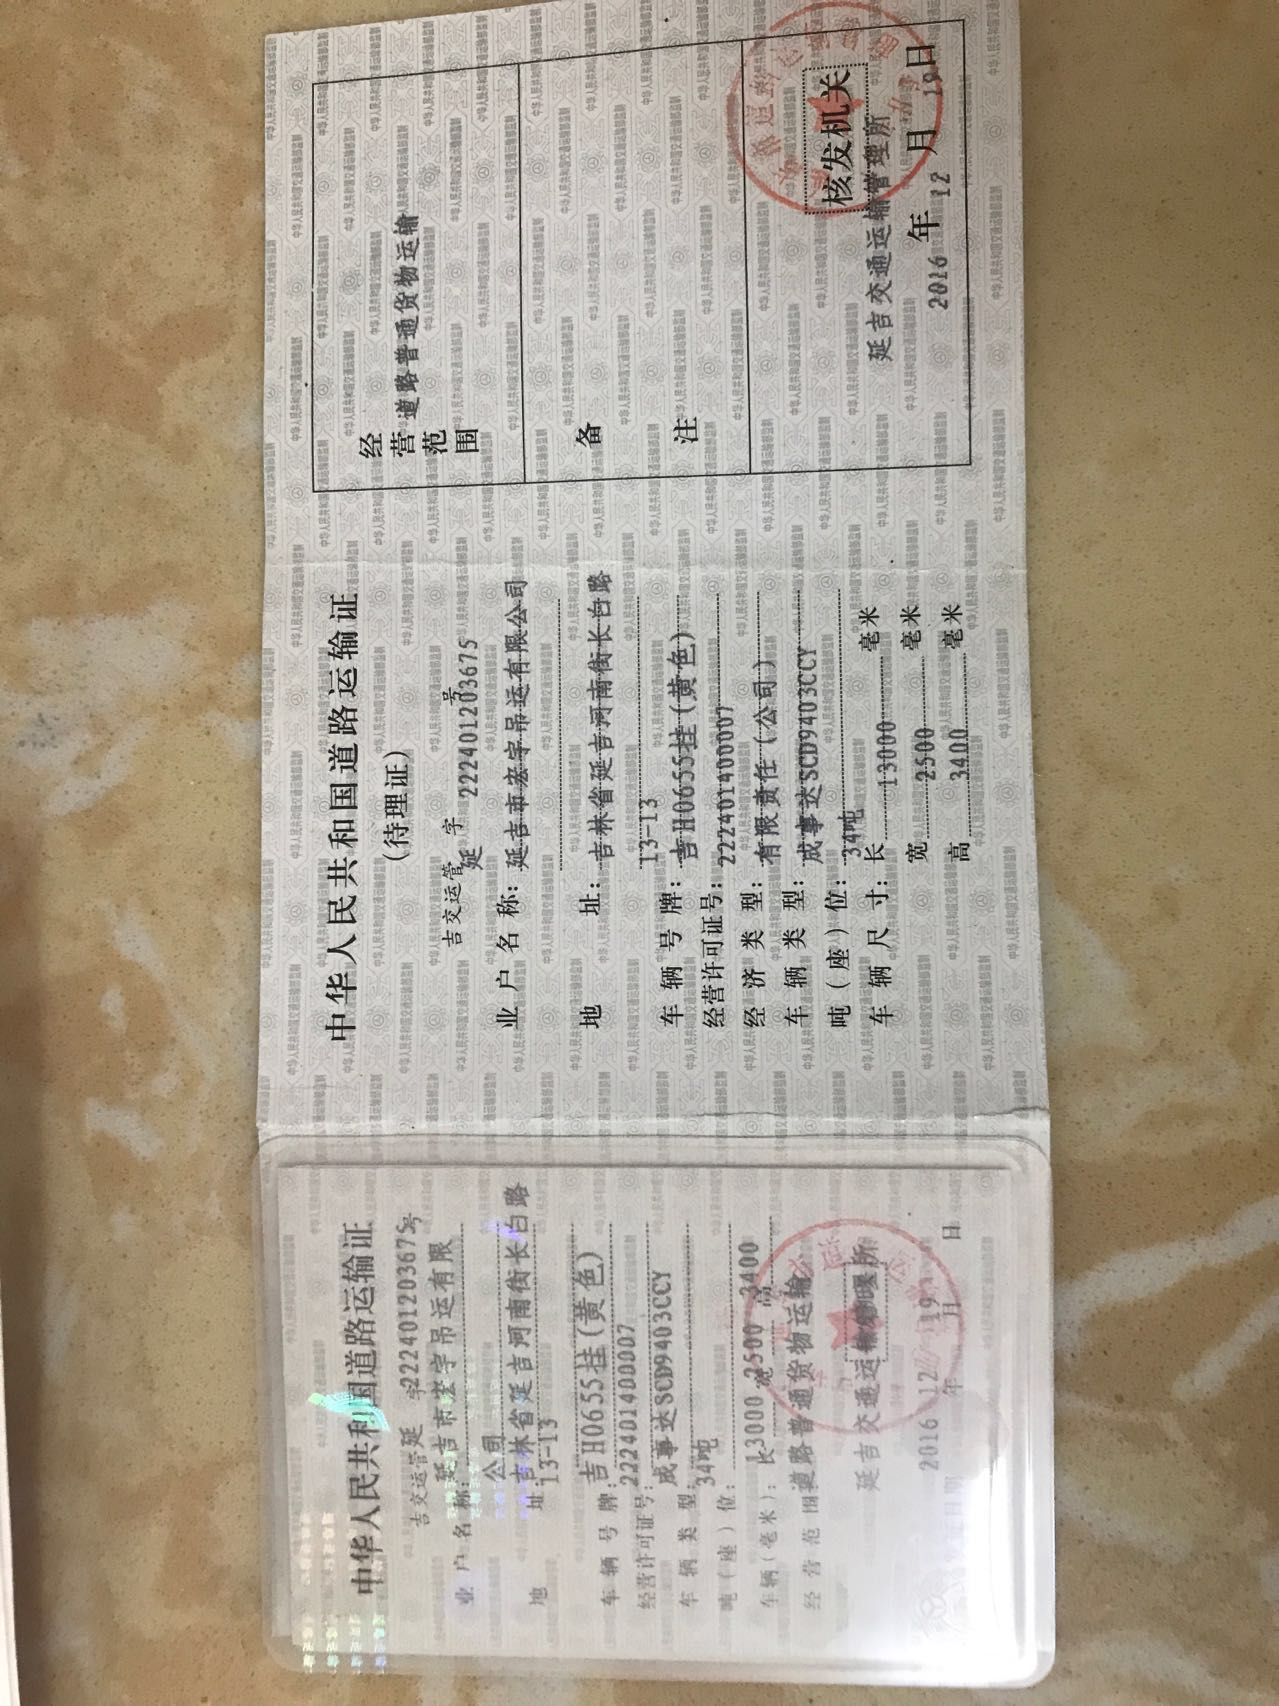 中华人民共和国道路运输证
吉交运管延 字222401203675号
业户名称: 延吉市宏宇吊运有限
公司
地 址: 吉林省延吉河南街长白路
13-13
车辆号牌: 吉H0655挂(黄色)
经营许可证号: 222401400007
车辆类型: 成事达SCD9403CCY
吨(座)位: 34吨
车辆(毫米): 长13000 宽2500 高3400
经营范围 道路普通货物运输
延吉交通运输管理所
2016 年 12 月 19 日
中华人民共和国道路运输证
(待理证)
吉交运管 延 字 222401203675 号
业户名称: 延吉市宏宇吊运有限公司
地 址: 吉林省延吉河南街长白路
13-13
车辆号牌: 吉H0655挂(黄色)
经营许可证号: 222401400007
经济类型: 有限责任(公司)
车辆类型: 成事达SCD9403CCY
吨(座)位: 34吨
车辆尺寸: 长 13000 毫米
宽 2500 毫米
高 3400 毫米
经营范围 道路普通货物运输
备注
核发机关
延吉交通运输管理所
2016 年 12 月 19 日